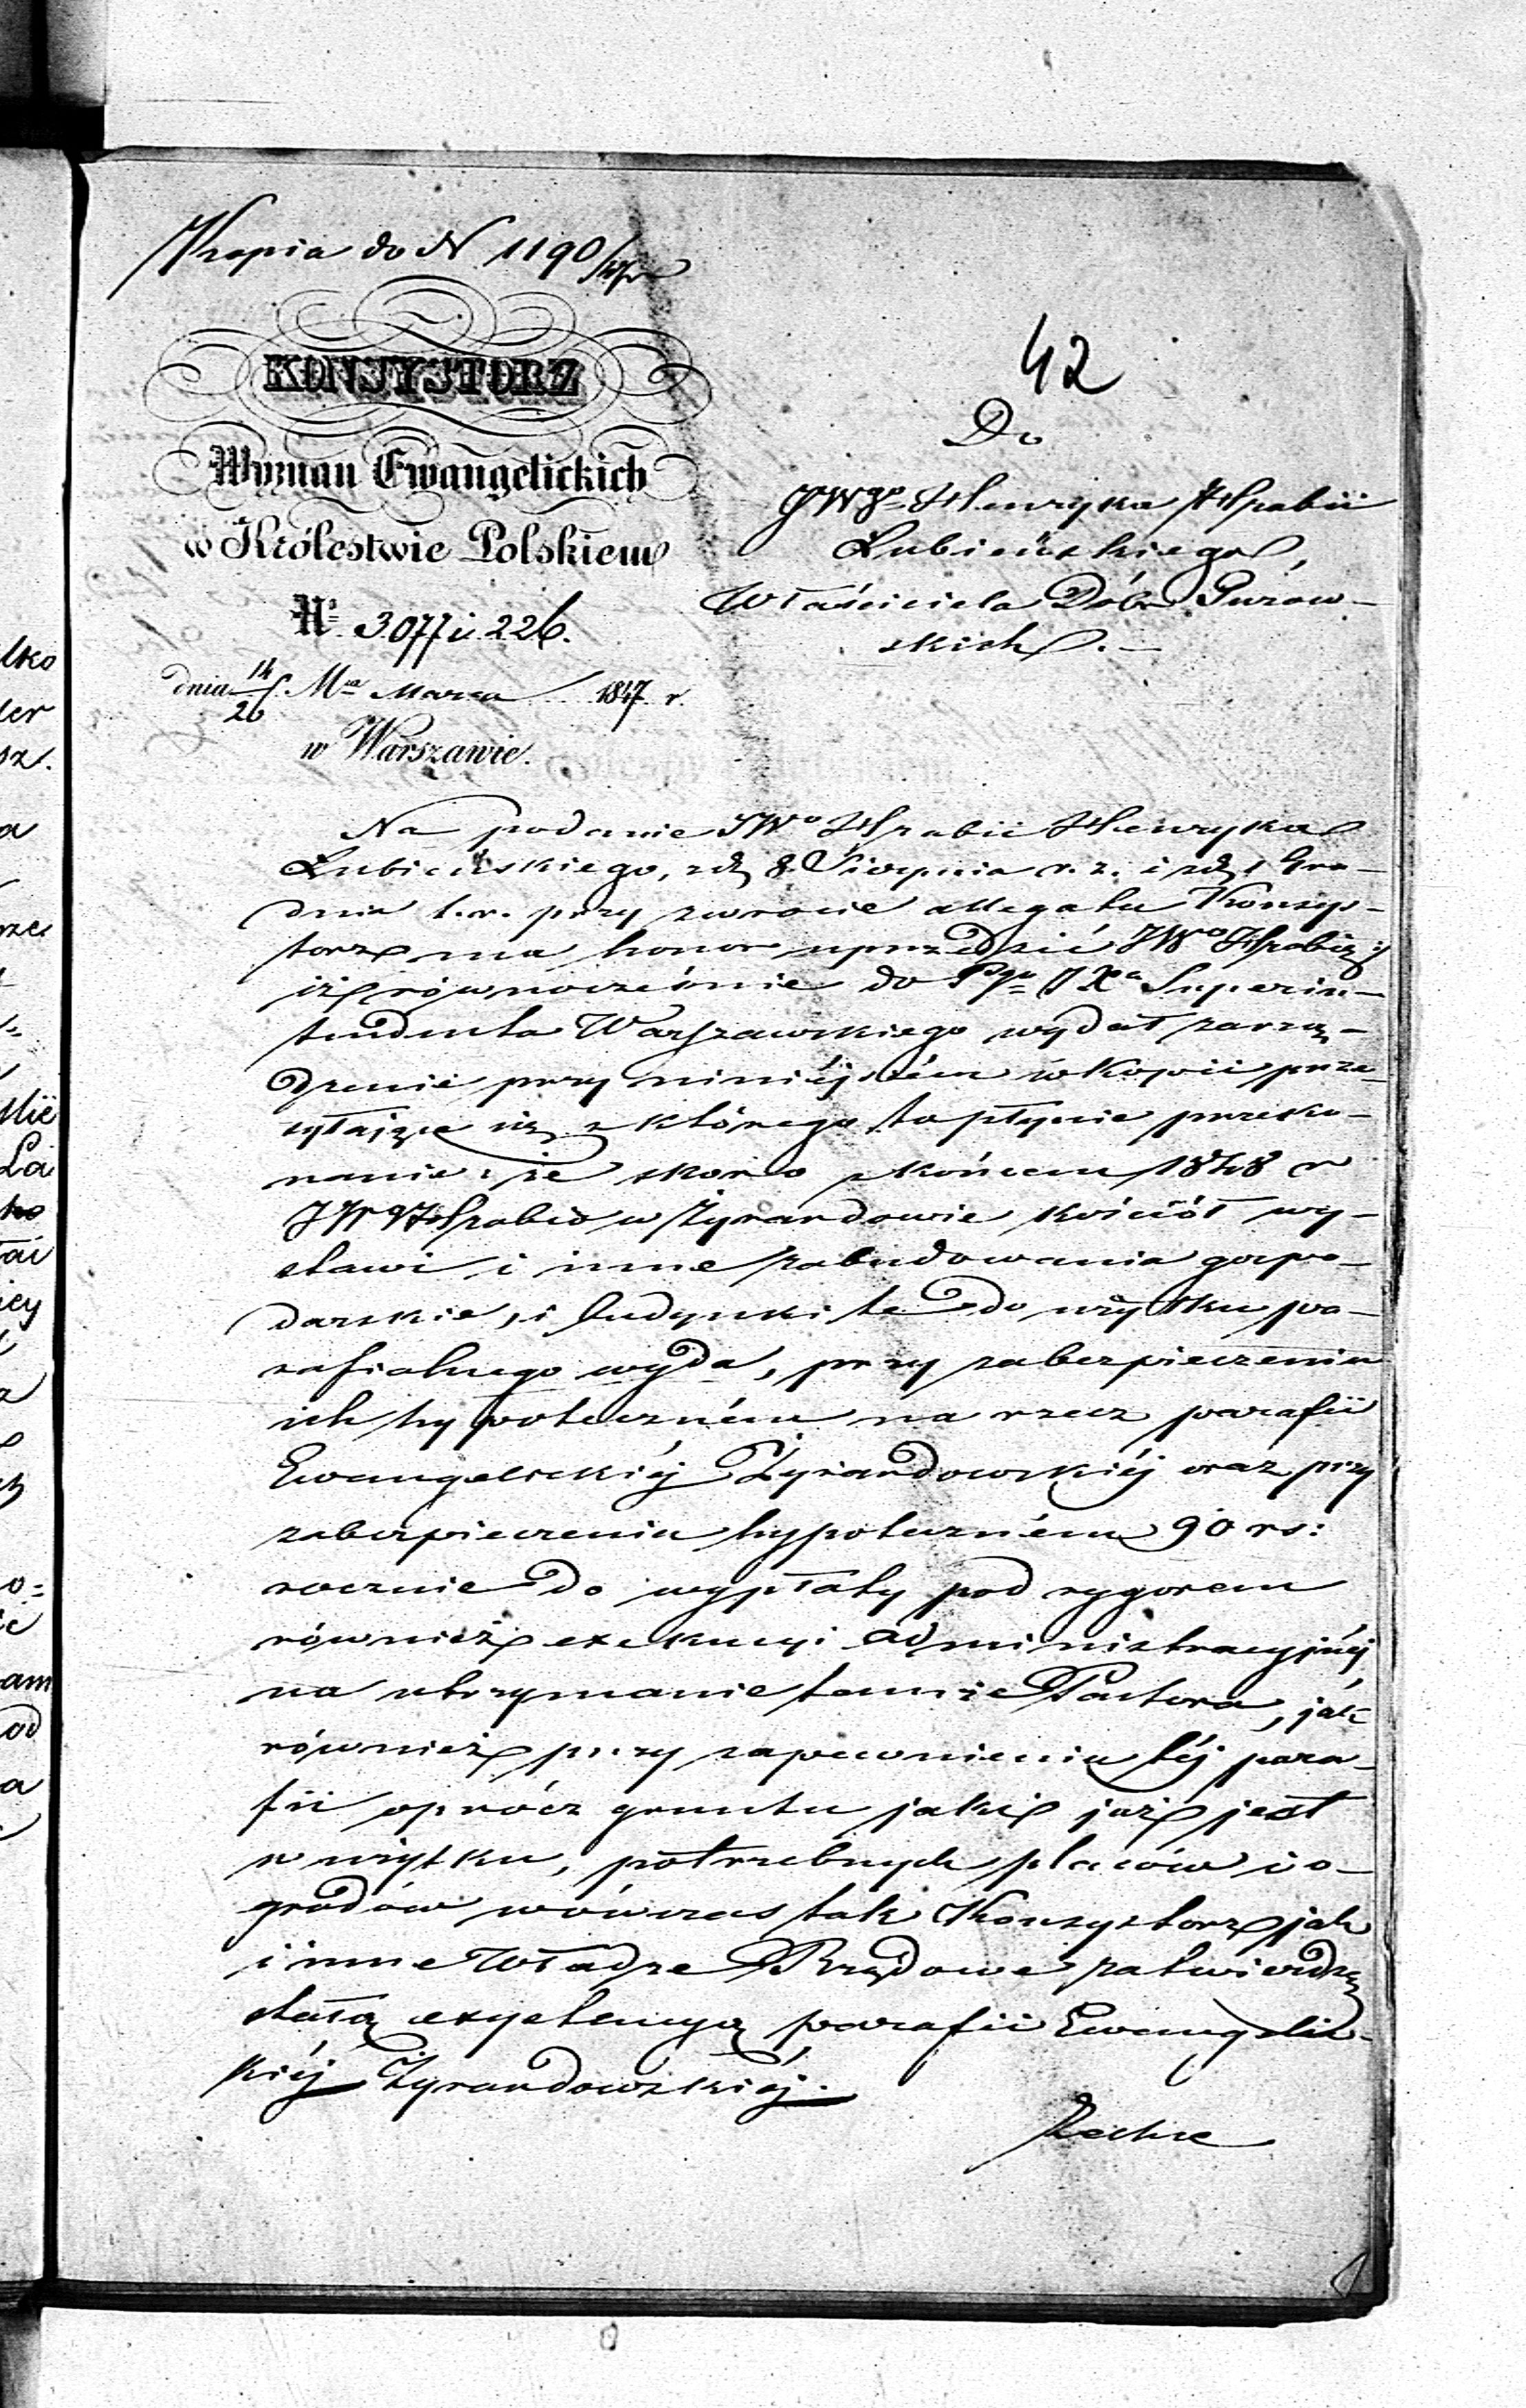 Kopia do N 1190/
42
KONSYSTORZ
Wyznań Ewangelickich
w Królestwie Polskiem
Nº. 3077 i 226.
dnia 14/26 Mca Marca 1847 r.
w Warszawie.
Do
JWgo Henryka Hrabii
Łubieńskiego,
Właściciela Dóbr Guzow-
skich. —
Na podanie JWo Hrabii Henryka
Łubieńskiego, z d. 8 Sierpnia r. z. i z d. 1 Gru-
dnia t. r. przy zwrocie allegatu Konsys-
torz ma honor uprzedzić JWo Hrabię
iż równocześnie do Superin-
tendenta Warszawskiego wydał zarzą-
dzenie przy niniéjszém w kopii prze-
syłające się z którego to płynie przeko-
nanie: że skoro z końcem 1848 r
JW Hrabia w Żyrardowie kościół wy-
stawi i inne zabudowania gospo-
darskie, i budynki te do użytku pa-
rafialnego wyda, przy zabezpieczeniu
ich hypoteczném na rzecz parafii
Ewangelickiéj Żyrardowskiéj oraz przy
zabezpieczeniu hypoteczném 90 rs:
rocznie do wypłaty pod rygorem
również exekucyi administracyjnéj
na utrzymanie tamże Pastora, jak
również przy zapewnieniu téj para-
fii oprócz gruntu jaki już jest
w użytku, potrzebnych placów i o-
grodów wówczas tak Konsystorz jak
i inne Władze Rządowe zatwierdzą
stałą exystencyą parafii Ewangelic-
kiéj Żyrardowskiéj.